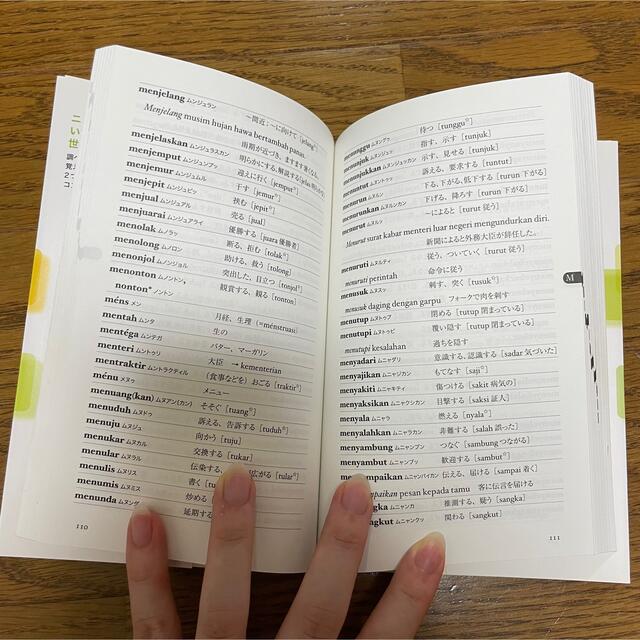 menjelang ムンジュラン ～間近；～に向けて [jelang°]
Menjelang musim hujan hawa bertambah panas.
雨期が近づき、ますます暑くなる。
menjelaskan ムンジュラスカン 明らかにする、解説する [jelas 明らか]
menjemput ムンジュンプッ 迎えに行く [jemput°]
menjemur ムンジュムル 干す [jemur°]
menjepit ムンジュピッ 挟む [jepit°]
menjual ムンジュアル 売る [jual]
menjuarai ムンジュアライ 優勝する [juara 優勝者]
menolak ムノラッ 断る、拒む [tolak°]
menolong ムノロン 助ける、救う [tolong]
menonjol ムノンジョル 突出した、目立つ [tonjol°]
menonton ムノントン、 観賞する、観る [tonton]
nonton* ノントン
méns メン 月経、生理 (=ménstruasi)
mentah ムンタ 生の
mentéga ムンテガ バター、マーガリン
menteri ムントゥリ 大臣 → kementerian
mentraktir ムントラクティル (食事などを) おごる [traktir°]
ménu メヌゥ メニュー
menuang(kan) ムヌアン(カン) そそぐ [tuang°]
menuduh ムヌドゥ 訴える、告訴する [tuduh°]
menuju ムヌジュ 向かう [tuju]
menukar ムヌカル 交換する [tukar]
menular ムヌラル 伝染する、 広がる [tular°]
menulis ムヌリス 書く
menumis ムヌミス 炒める
menunda ムヌンダ 延期する
110
menunggu ムヌングゥ 待つ [tunggu°]
menunjuk ムヌンジュッ 指す、示す [tunjuk]
menunjukkan ムヌンジュッカン 示す、見せる [tunjuk]
menuntut ムヌントゥッ 訴える、要求する [tuntut]
menurun ムヌルン 下る、下がる、低下する [turun 下がる]
menurunkan ムヌルンカン 下げる、降ろす [turun 下がる]
menurut ムヌルッ ～によると [turut 従う]
Menurut surat kabar menteri luar negeri mengundurkan diri.
新聞によると外務大臣が辞任した。
menuruti ムヌルティ 従う、ついていく [turut 従う]
menuruti perintah 命令に従う
menusuk ムヌスッ 刺す、突く [tusuk°]
menusuk daging dengan garpu フォークで肉を刺す
menutup ムヌトゥプ 閉める [tutup 閉まっている]
menutupi ムヌトゥピ 覆い隠す [tutup 閉まっている]
menutupi kesalahan 過ちを隠す
menyadari ムニャダリ 意識する、認識する [sadar 気づいた]
menyajikan ムニャジカン もてなす [saji°]
menyakiti ムニャキティ 傷つける [sakit 病気の]
menyaksikan ムニャクシカン 目撃する [saksi 証人]
menyala ムニャラ 燃える [nyala°]
menyalahkan ムニャラカン 非難する [salah 誤った]
menyambung ムニャンブン つなぐ [sambung つながる]
menyambut ムニャンブッ 歓迎する [sambut°]
mpaikan ムニャンパイカン 伝える、届ける [sampai 着く]
mpaikan pesan kepada tamu 客に伝言を届ける
ngka ムニャンカ 推測する、疑う [sangka
gkut ムニャンクッ 関わる [sangkut]
111
M